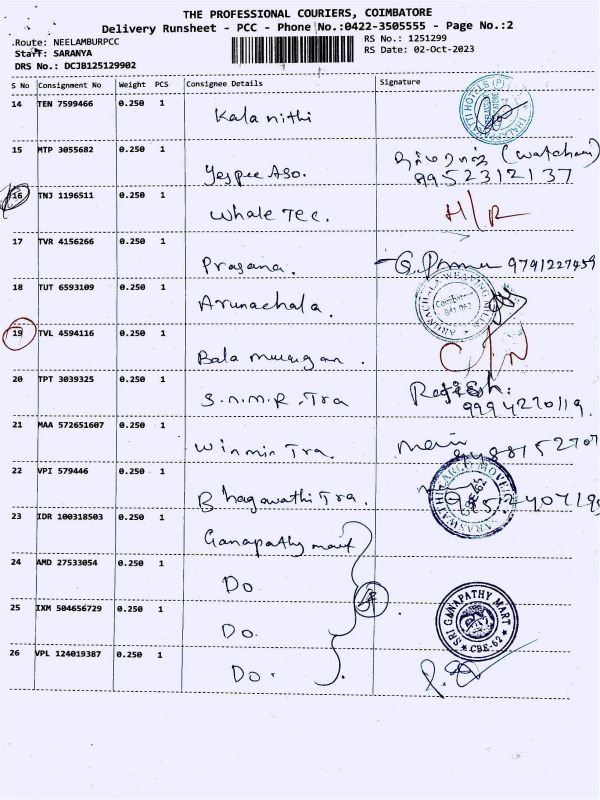 THE PROFESSIONAL COURIERS, COIMBATORE
Delivery Runsheet - PCC - Phone No.:0422-3505555 - Page No.:2
Route: NEELAMBURPCC
RS No.: 1251299
Staff: SARANYA
RS Date: 02-Oct-2023
DRS No.: DCJB125129902
S No Consignment No Weight PCS Consignee Details Signature
14 TEN 7599466 0.250 1 Kalanithi
15 MTP 3055682 0.250 1 Yespee Aso. (watchman)
9952312137
16 TNJ 1196511 0.250 1 Whale Tec. H/R
17 TVR 4156266 0.250 1 Prasana. 9791227459
18 TUT 6593109 0.250 1 Arunachala.
Coimbatore
19 TVL 4594116 0.250 1 Bala murugan.
20 TPT 3039325 0.250 1 S.N.M.R. Tra Rajesh.
9994270119.
21 MAA 572651607 0.250 1 Winmin Tra.
22 VPI 579446 0.250 1 Bhagawathi Tra.
23 IDR 100318503 0.250 1 Ganapathy mart
24 AMD 27533054 0.250 1 Do.
25 IXM 504656729 0.250 1 Do.
SRI GANAPATHY MART
* CBE-62 *
26 VPL 124019387 0.250 1 Do.